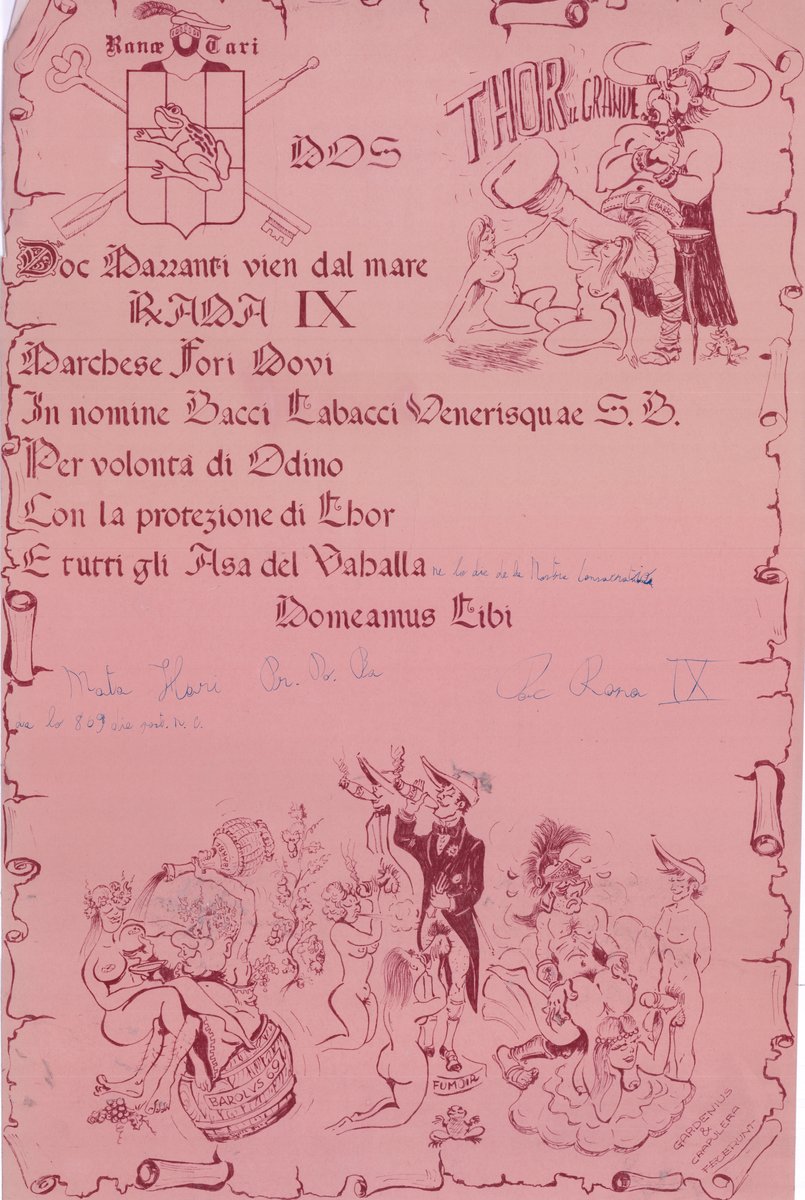 Ranæ Tari
NOS
THOR IL GRANDE
Doc Mazzanti vien dal mare
RANA IX
Marchese Fori Novi
In nomine Bacci Tabacci Venerisquae S. B.
Per volontà di Odino
Con la protezione di Thor
E tutti gli Asa del Vahalla ne lo die de la Nostra
Nomeamus Tibi
Mata Hari Rana IX
lo 869 die post. N. C.
BAROLVS 69
FUMJIR
GARDENIUS
&
CRAPULERA
FECERUNT